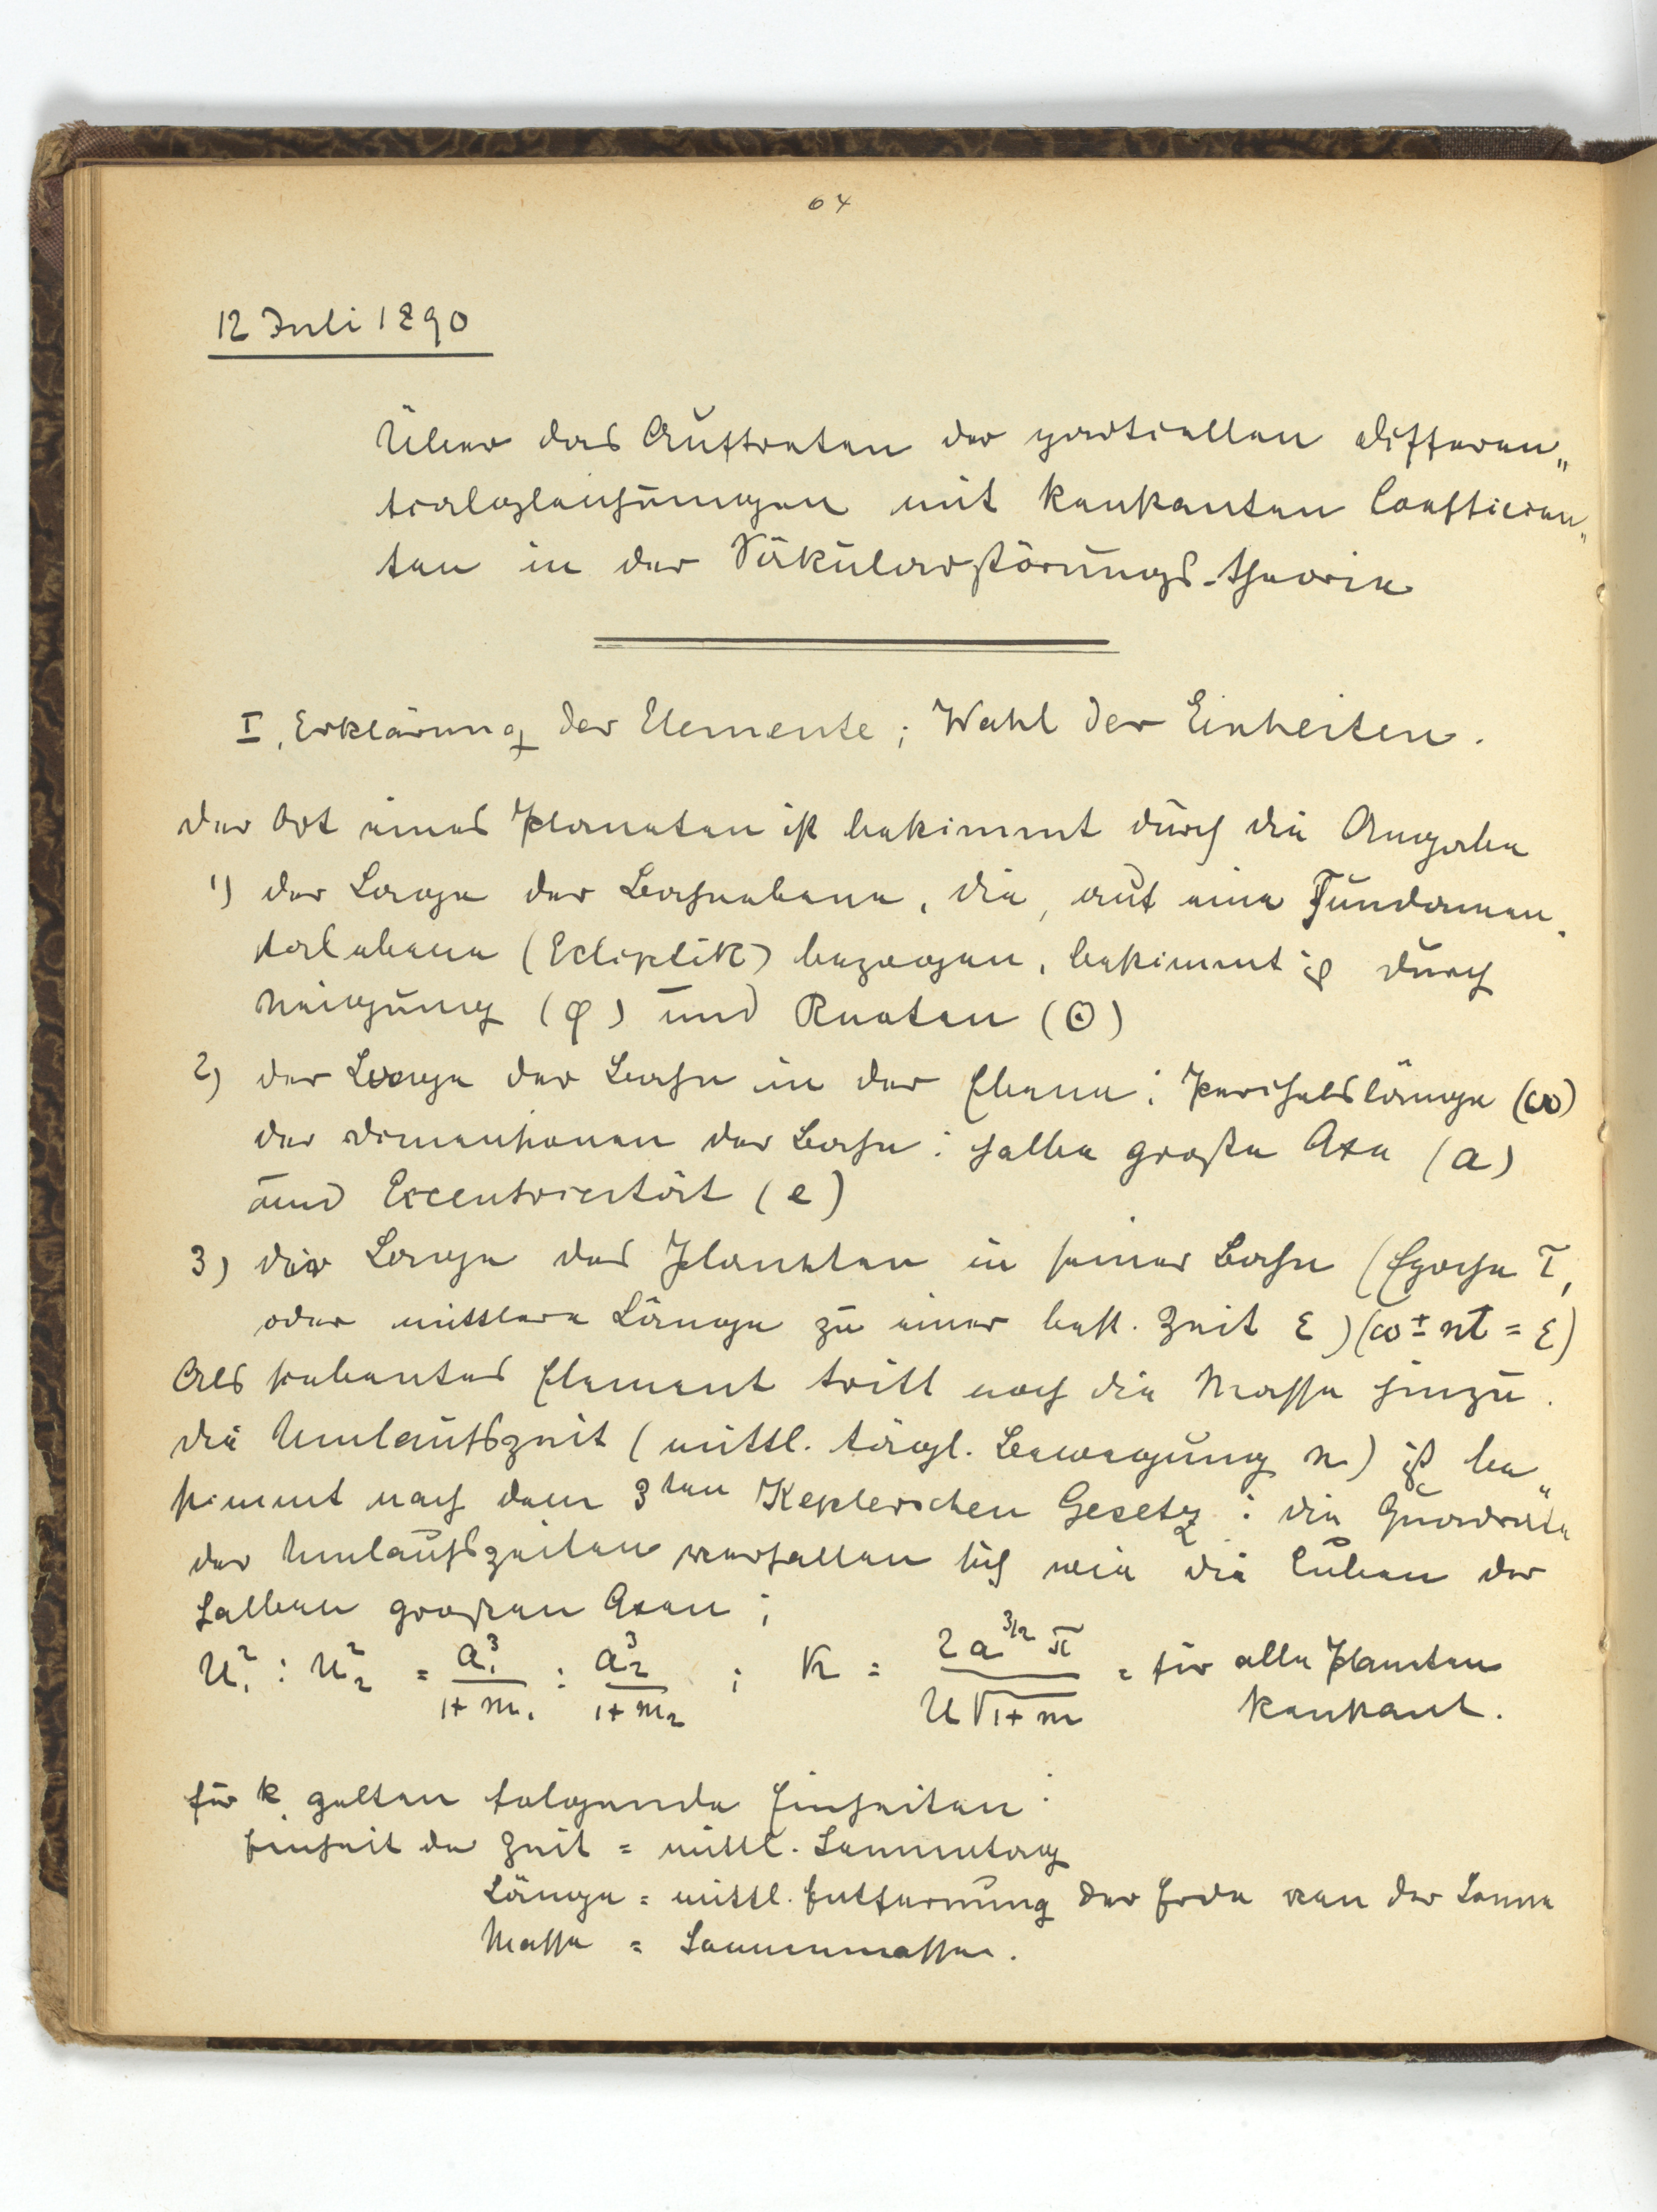 64
12 Juli 1890
Über das Auftreten der partiellen Differen„
tialgleichungen mit konstanten Coefficien„
ten in der Säkularstörungs-theorie
I, Erklärung der Elemente; Wahl der Einheiten.
Der Ort eines Planeten ist bestimmt durch die Angabe
1) der Lage der Bahnebene, die, auf eine Fundamen„
talebene (Ecliptik) bezogen, bestimmt ist durch
Neigung (φ) und Knoten (☉)
2) der Lage der Bahn in der Ebene: Perihelslänge (ω)
der Dimensionen der Bahn: halbe große Axe (a)
und Eccentricität (e)
3) der Lage des Planeten in seiner Bahn (Epoche T,
oder mittlere Länge zu einer best. Zeit ε) (ω ± nt = ε)
Als siebentes Element tritt noch die Masse hinzu.
Die Umlaufszeit (mittl. tägl. Bewegung n) ist be„
stimmt nach dem 3ten Keplerschen Gesetz: die Quadrate
der Umlaufszeiten verhalten sich wie die Cuben der
halben großen Axen;
U₁² : U₂² = a₁³/(1+m₁) : a₂³/(1+m₂) ; k = 2a^{3/2}π/(U√(1+m)) = für alle Planeten
konstant.
für k gelten folgende Einheiten:
Einheit der Zeit = mittl. Sonnentag
Länge = mittl. Entfernung der Erde von der Sonne
Masse = Sonnenmasse.